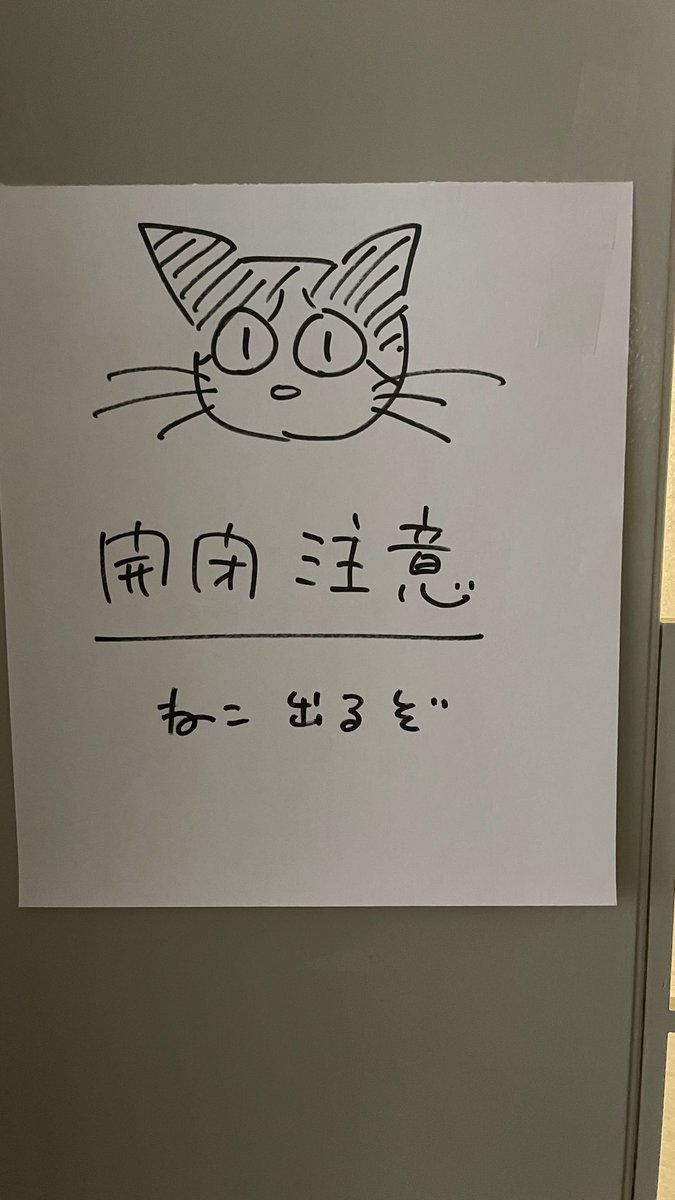 開閉注意
ねこ出るぞ